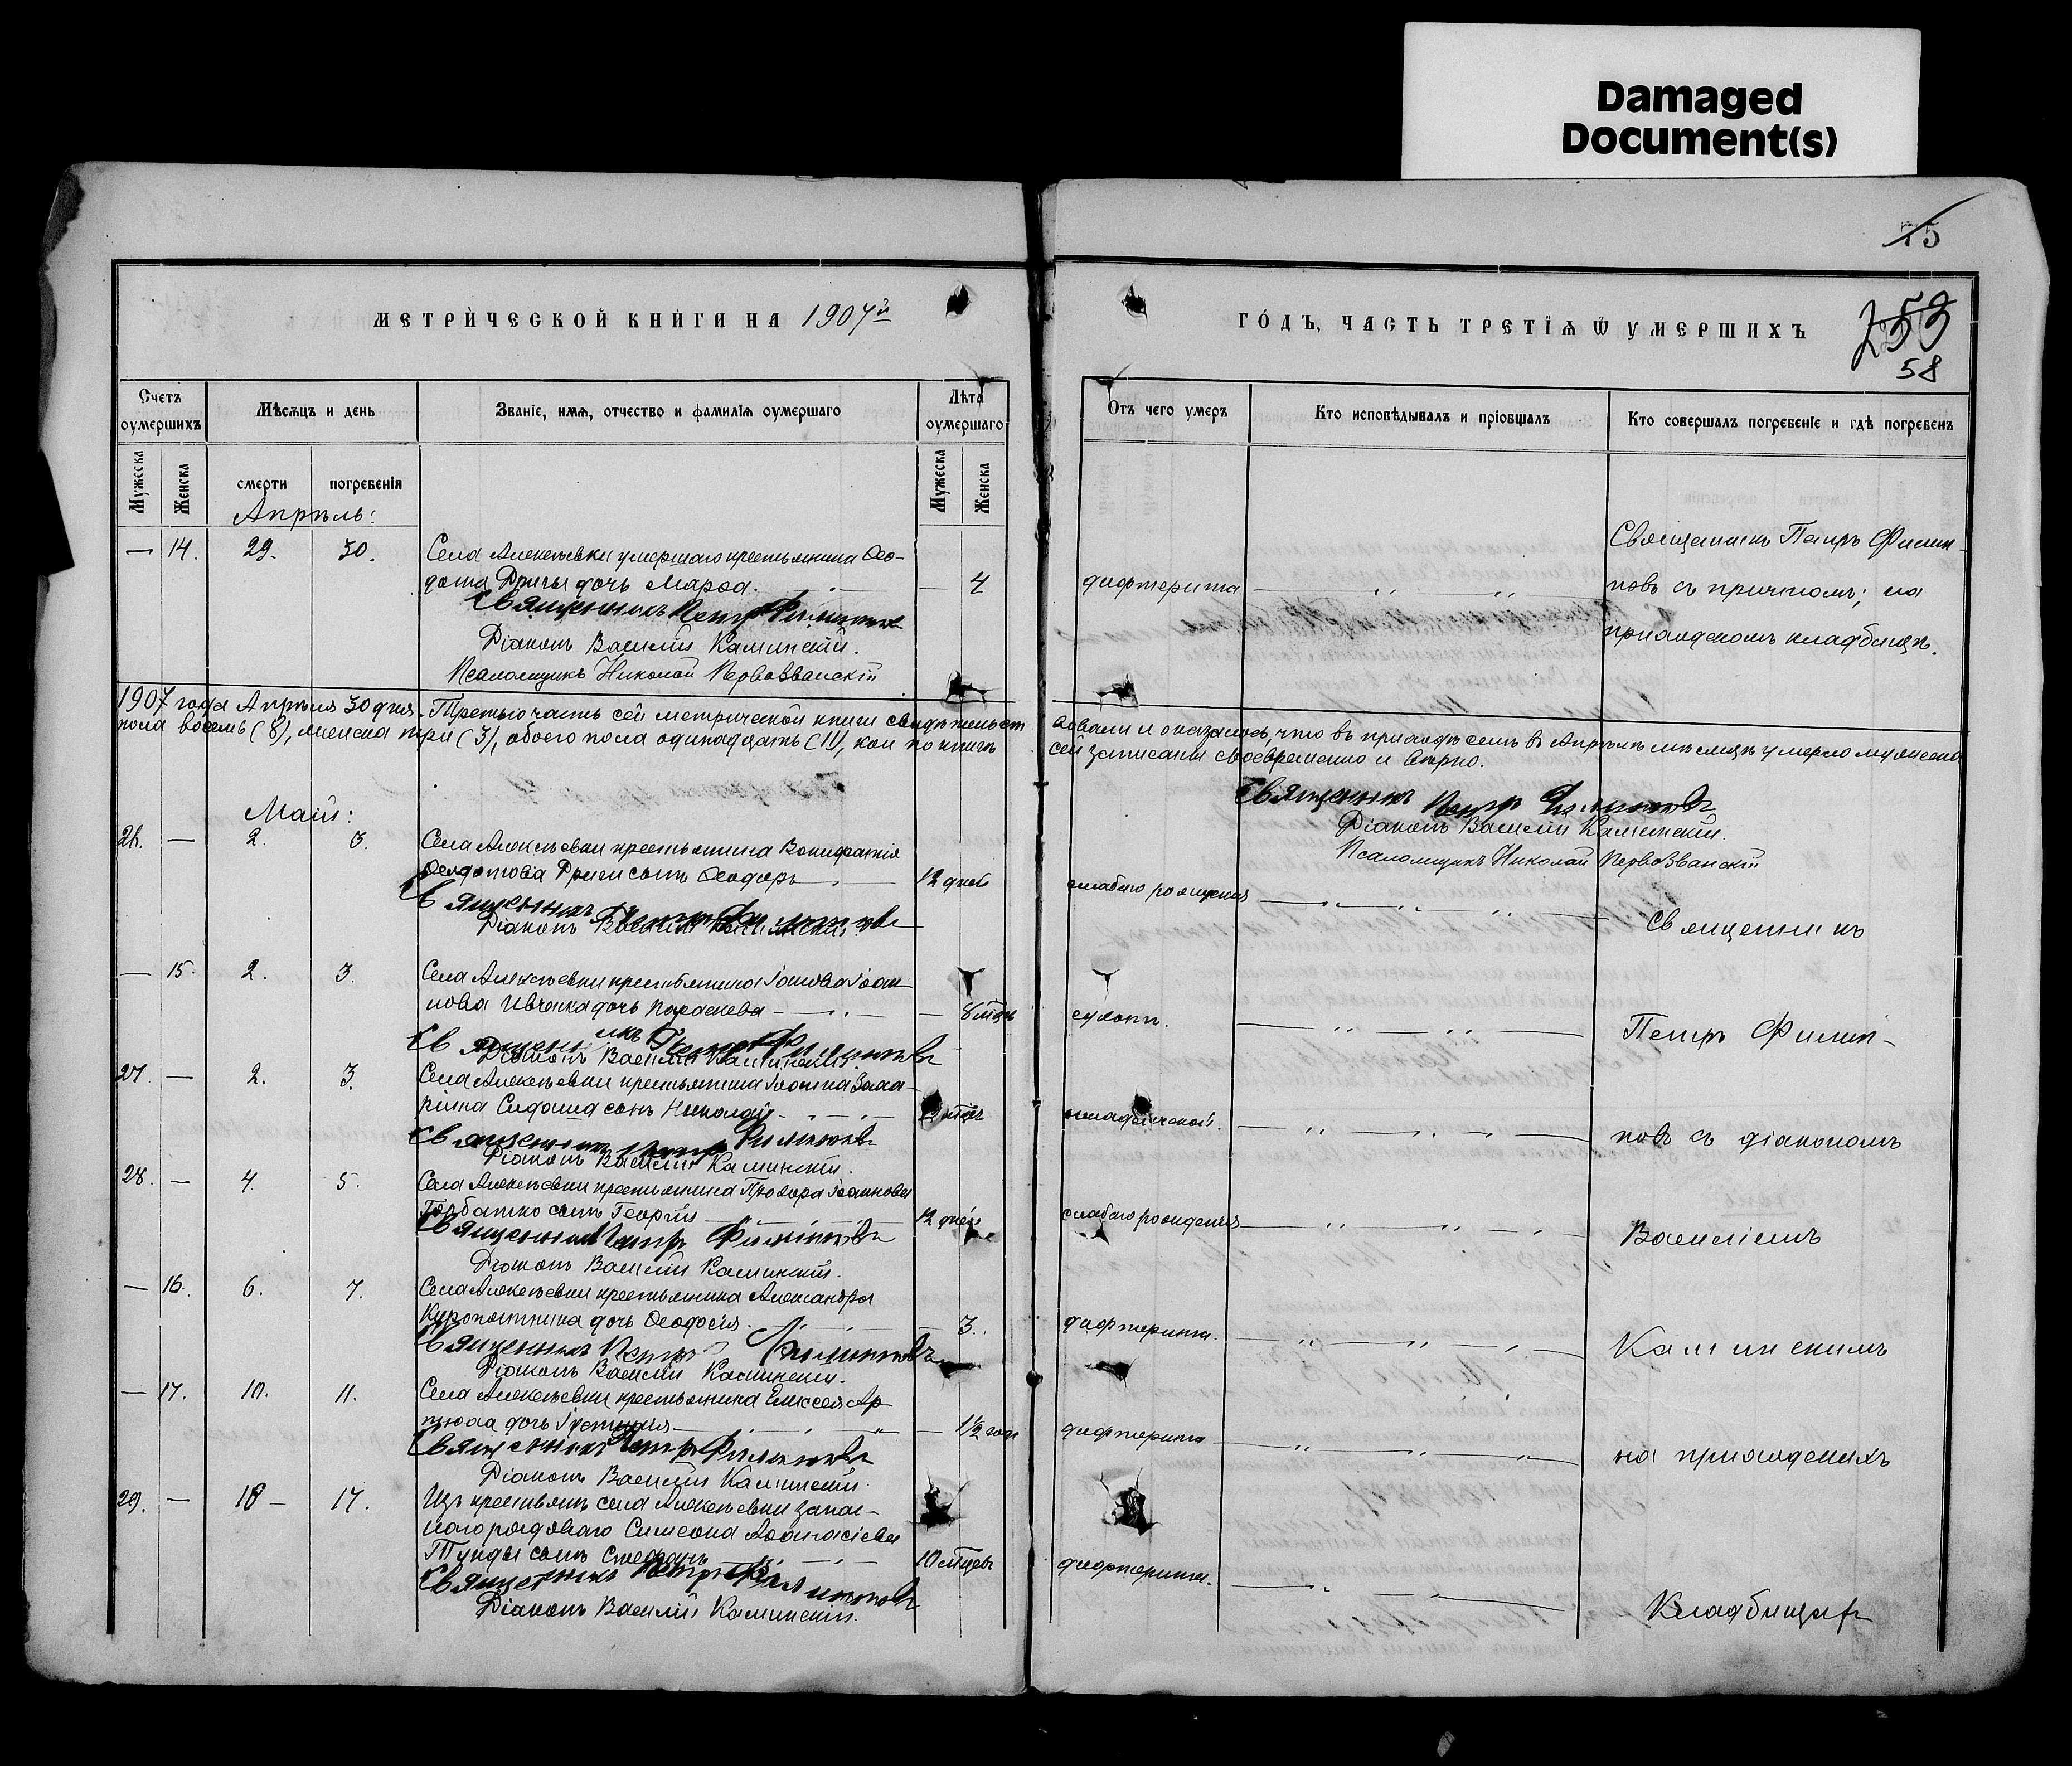 Damaged
Document(s)
75
МЕТРИЧЕСКОЙ КНИГИ НА 1907й
ГОДЪ, ЧАСТЬ ТРЕТІЯ Ѿ УМЕРШИХЪ
253
58
Счетъ оумершихъ
Мѣсяцъ и день
Званіе, имя, отчество и фамилія оумершаго
Лѣта оумершаго
Отъ чего умеръ
Кто исповѣдывалъ и пріобщалъ
Кто совершалъ погребеніе и гдѣ погребенъ
Мужеска
Женска
смерти
погребенія
Мужеска
Женска
Апрѣль:
— 14. 29. 30. Села Алексѣевки умершаго крестьянина Ѳео-
дота Дриги дочь Марѳа. — 4 дифтерита
Священникъ Петръ Филипповъ
Діаконъ Василій Каминскій.
Псаломщикъ Николай Первозванскій
Священникъ Петръ Филип-
повъ съ причтомъ; на
приходскомъ кладбищѣ.
1907 года Апрѣля 30 дня Третью часть сей метрической книги свидѣтельст
вовали и оказалось, что въ приходѣ семъ въ Апрѣлѣ мѣсяцѣ умерло мужеска
пола восемь (8), женска три (3), обоего пола одинадцать (11), кои по книгѣ
сей записаны своевременно и вѣрно.
Священникъ Петръ Филипповъ
Діаконъ Василій Каминскій.
Псаломщикъ Николай Первозванскій
Май:
26. — 2. 3. Села Алексѣевки крестьянина Вонифатія
Ѳеодотова Дриги сынъ Ѳеодоръ 12 дней слабаго рожденія
Священникъ Петръ Филипповъ
Діаконъ Василій Каминскій
Священникъ
— 15. 2. 3. Села Алексѣевки крестьянина Іакова Іоан
нова Ивченка дочь Параскева — 8 мѣц сухоты.
Священникъ Петръ Филипповъ
Діаконъ Василій Каминскій
Петръ Филип-
27. — 2. 3. Села Алексѣевки крестьянина Іоанна Заха-
сынъ Николай мѣц младенческой.
Священникъ Петръ Филипповъ
Діаконъ Василій Каминскій.
повъ съ діакономъ
28. — 4. 5. Села Алексѣевки крестьянина Прохора Іоаннова
Горбатко сынъ Георгій 12 дней слабаго рожденія
Священникъ Петръ Филипповъ
Діаконъ Василій Каминскій.
Василіемъ
— 16. 6. 7. Села Алексѣевки крестьянина Александра
Куропятника дочь Ѳеодосія. — 3. дифтерита.
Священникъ Петръ Филипповъ
Діаконъ Василій Каминскій.
Каминскимъ
— 17. 10. 11. Села Алексѣевки крестьянина Елиссея Ар
тюха дочь Іустинія — 1½ года дифтерита
Священникъ Петръ Филипповъ
Діаконъ Василій Каминскій.
на приходскихъ
29. — 16 — 17. Изъ крестьянъ села Алексѣевки запас-
наго рядоваго Симеона Аѳанасіева
сынъ Стефанъ 10 мѣцевъ дифтерита.
Священникъ Петръ Филипповъ
Діаконъ Василій Каминскій.
Кладбищахъ